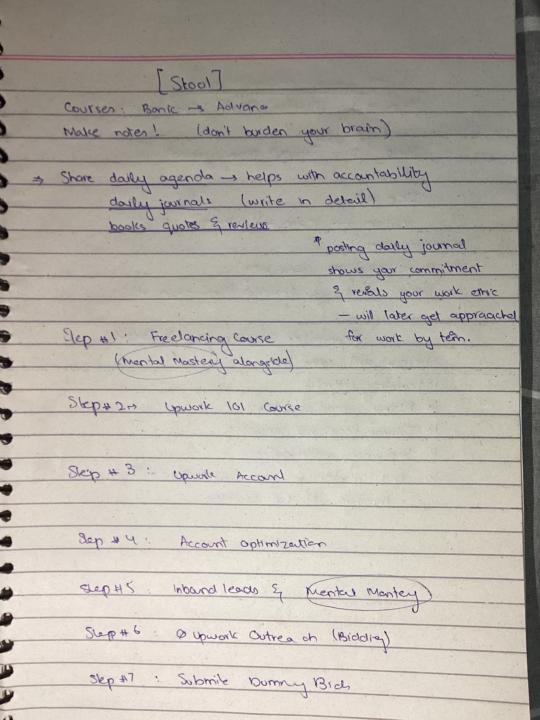 [Skool]
Courses: Basic → Advance
Make notes! (don't burden your brain)
⇒ Share daily agenda → helps with accountability
daily journals (write in detail)
books quotes & reviews
* posting daily journal
shows your commitment
& reveals your work ethic
– will later get appraached
for work by team.
Step #1: Freelancing Course
(Mental Mastery alongside)
Step #2 → Upwork 101 Course
Step # 3: Upwork Account
Step # 4: Account optimization
Step #5 Inbound leads & Mental Mastery
Step # 6: Upwork Outreach (Bidding)
Step #7: Submite Dummy Bids